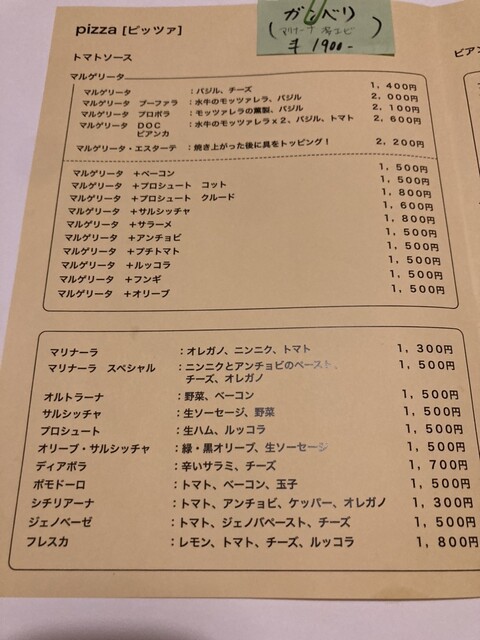 pizza [ピッツァ]
ガンベリ
(マリナーナ 海エビ)
¥1900-
トマトソース
マルゲリータ
マルゲリータ :バジル、チーズ 1,400円
マルゲリータ ブーファラ :水牛のモッツァレラ、バジル 2,000円
マルゲリータ プロボラ :モッツァレラの燻製、バジル 2,100円
マルゲリータ DOC :水牛のモッツァレラx2、バジル、トマト 2,600円
ビアンカ
マルゲリータ・エスターテ :焼き上がった後に具をトッピング! 2,200円
マルゲリータ +ベーコン 1,500円
マルゲリータ +プロシュート コット 1,500円
マルゲリータ +プロシュート クルード 1,800円
マルゲリータ +サルシッチャ 1,600円
マルゲリータ +サラーメ 1,800円
マルゲリータ +アンチョビ 1,500円
マルゲリータ +プチトマト 1,500円
マルゲリータ +ルッコラ 1,500円
マルゲリータ +フンギ 1,500円
マルゲリータ +オリーブ 1,500円
マリナーラ :オレガノ、ニンニク、トマト 1,300円
マリナーラ スペシャル :ニンニクとアンチョビのペースト、 1,500円
チーズ、オレガノ
オルトラーナ :野菜、ベーコン 1,500円
サルシッチャ :生ソーセージ、野菜 1,500円
プロシュート :生ハム、ルッコラ 1,500円
オリーブ・サルシッチャ :緑・黒オリーブ、生ソーセージ 1,500円
ディアボラ :辛いサラミ、チーズ 1,700円
ポモドーロ :トマト、ベーコン、玉子 1,500円
シチリアーナ :トマト、アンチョビ、ケッパー、オレガノ 1,300円
ジェノベーゼ :トマト、ジェノバペースト、チーズ 1,500円
フレスカ :レモン、トマト、チーズ、ルッコラ 1,800円
ビアン